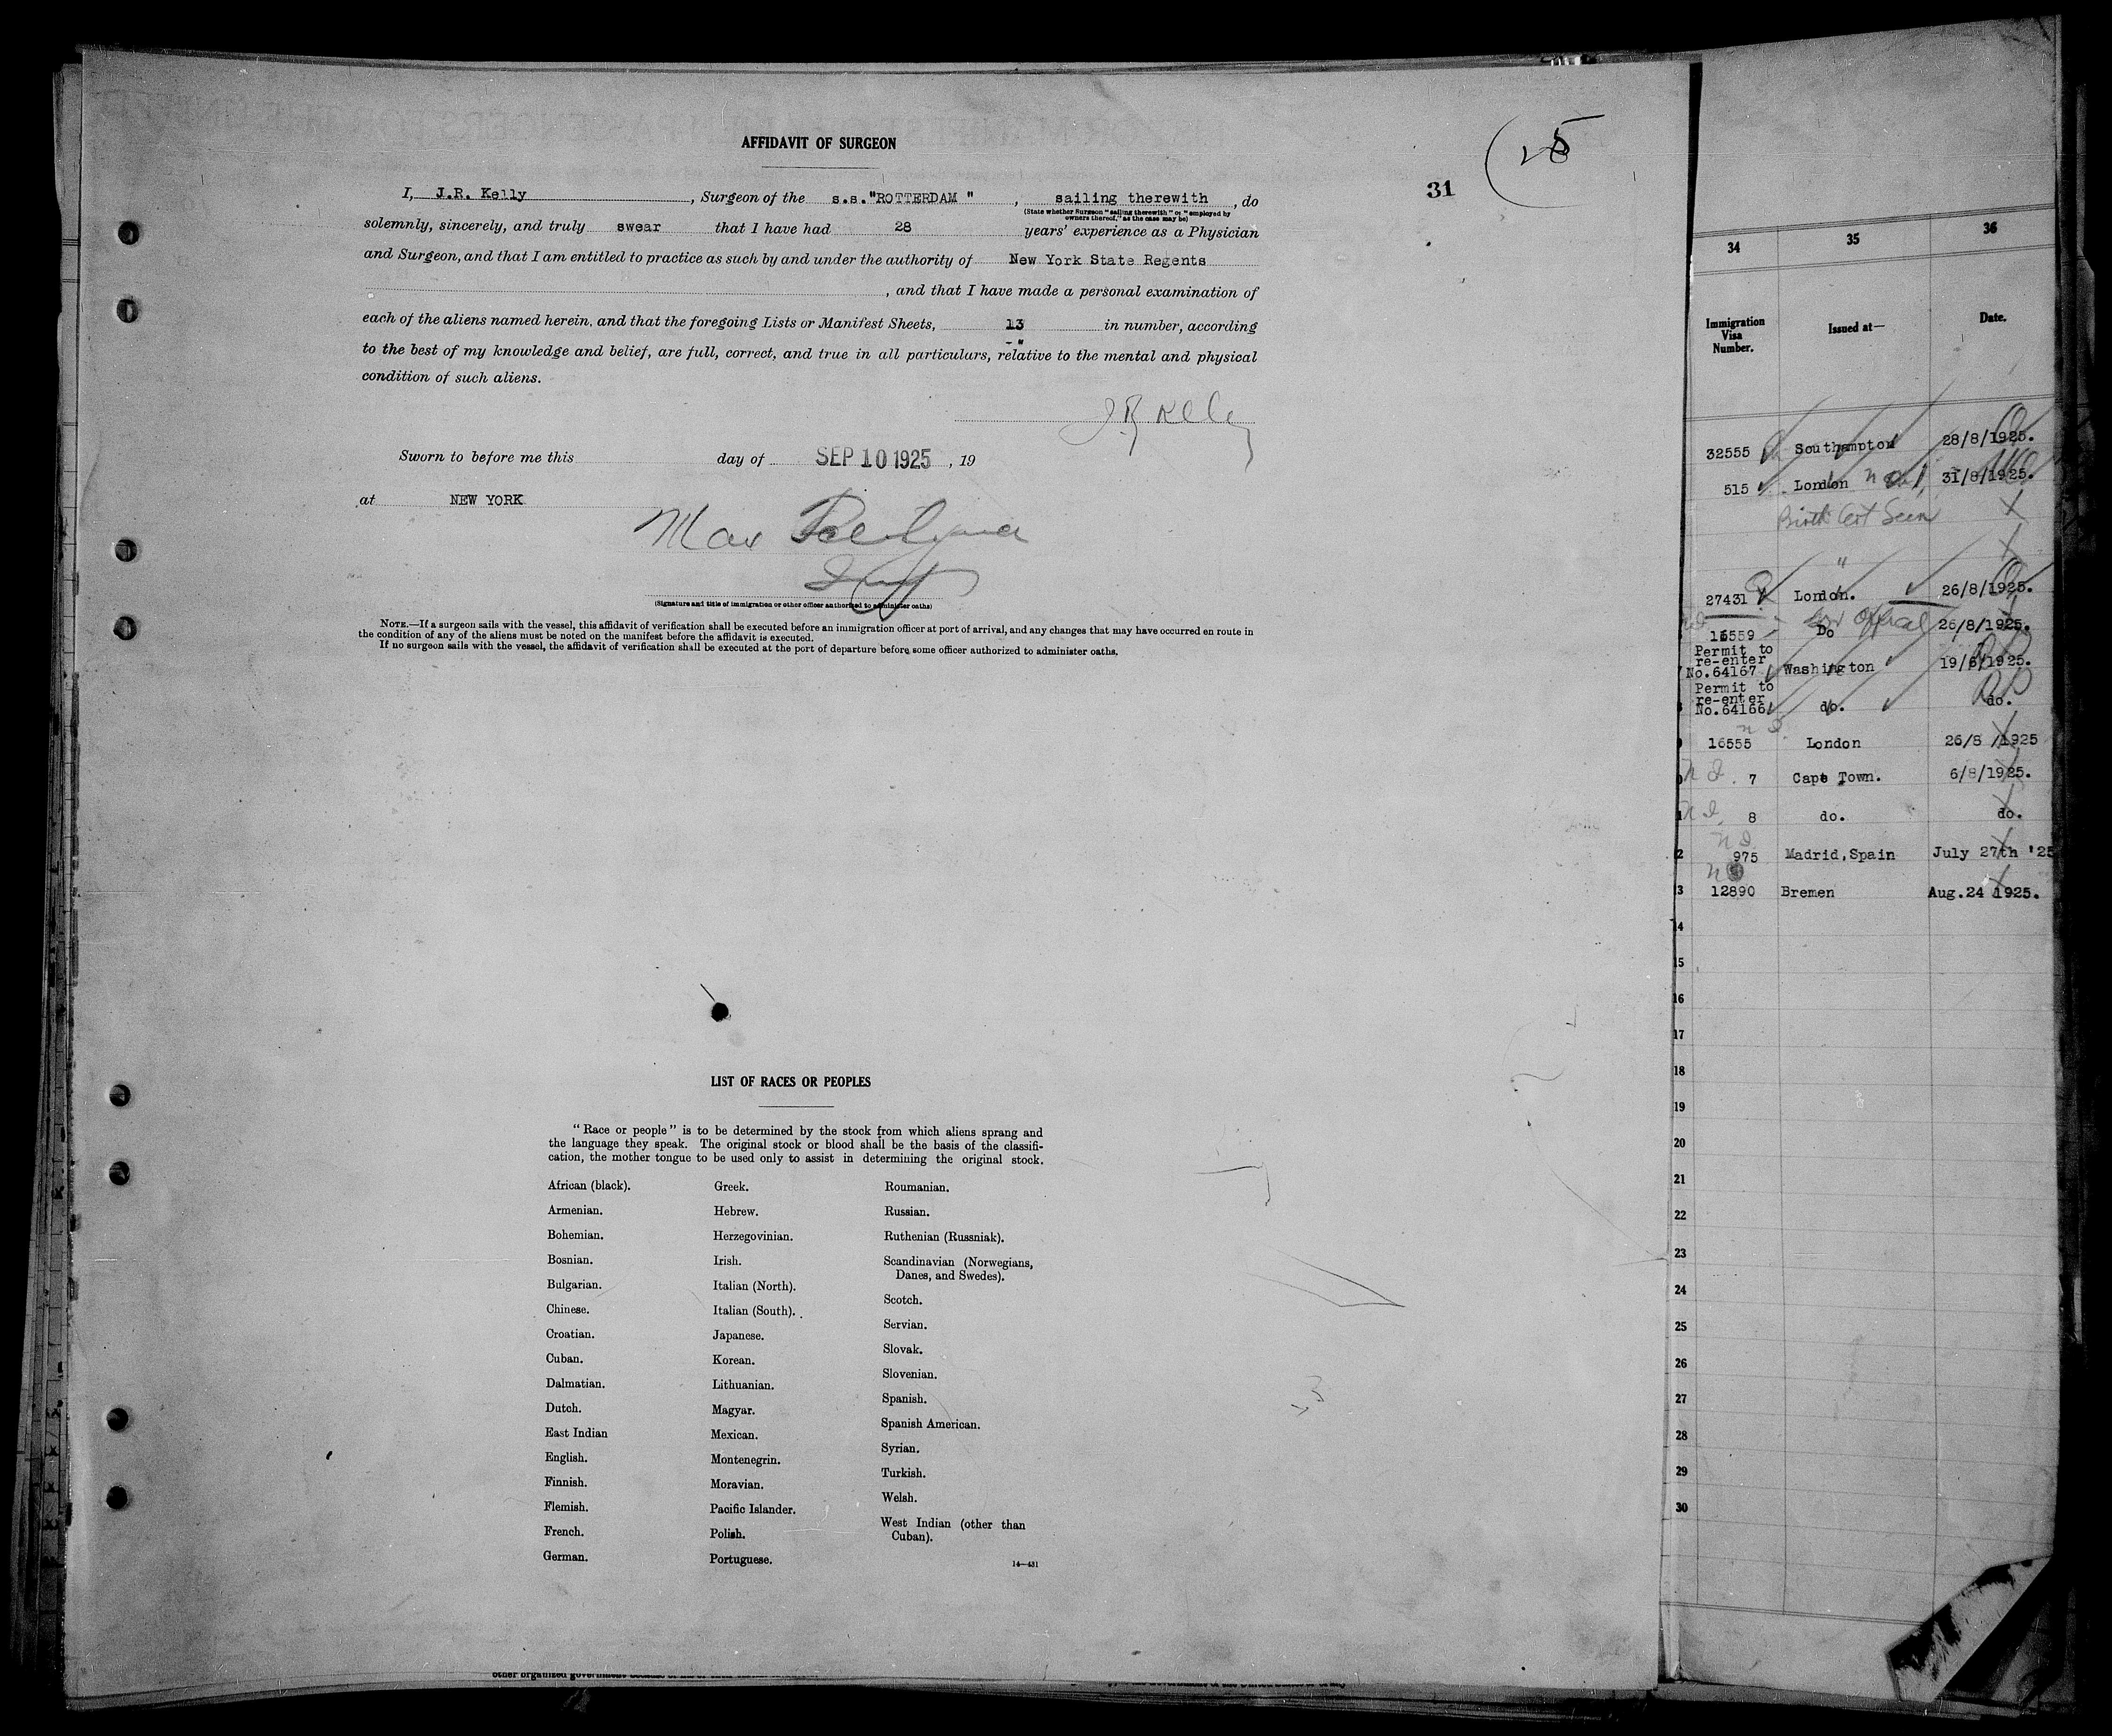 AFFIDAVIT OF SURGEON
31
I, J.R. Kelly, Surgeon of the s.s."ROTTERDAM ", sailing therewith, do
(State whether Surgeon "sailing therewith" or "employed by
owners thereof," as the case may be)
solemnly, sincerely, and truly swear that I have had 28 years' experience as a Physician
and Surgeon, and that I am entitled to practice as such by and under the authority of New York State Regents
, and that I have made a personal examination of
each of the aliens named herein, and that the foregoing Lists or Manifest Sheets, 13 in number, according
to the best of my knowledge and belief, are full, correct, and true in all particulars, relative to the mental and physical
condition of such aliens.
J R Kelly
Sworn to before me this day of SEP 10 1925, 19
at NEW YORK
Max
(Signature and title of immigration or other officer authorized to administer oaths)
NOTE.—If a surgeon sails with the vessel, this affidavit of verification shall be executed before an immigration officer at port of arrival, and any changes that may have occurred en route in
the condition of any of the aliens must be noted on the manifest before the affidavit is executed.
If no surgeon sails with the vessel, the affidavit of verification shall be executed at the port of departure before some officer authorized to administer oaths.
LIST OF RACES OR PEOPLES
"Race or people" is to be determined by the stock from which aliens sprang and
the language they speak. The original stock or blood shall be the basis of the classifi-
cation, the mother tongue to be used only to assist in determining the original stock.
African (black).
Armenian.
Bohemian.
Bosnian.
Bulgarian.
Chinese.
Croatian.
Cuban.
Dalmatian.
Dutch.
East Indian
English.
Finnish.
Flemish.
French.
German.
Greek.
Hebrew.
Herzegovinian.
Irish.
Italian (North).
Italian (South).
Japanese.
Korean.
Lithuanian.
Magyar.
Mexican.
Montenegrin.
Moravian.
Pacific Islander.
Polish.
Portuguese.
Roumanian.
Russian.
Ruthenian (Russniak).
Scandinavian (Norwegians,
Danes, and Swedes).
Scotch.
Servian.
Slovak.
Slovenian.
Spanish.
Spanish American.
Syrian.
Turkish.
Welsh.
West Indian (other than
Cuban).
14—431
34 35 36
Immigration
Visa
Number.
Issued at—
Date.
32555 Southampton 28/8/1925.
515 London 31/8/1925.
Birth Cert Seen
"
27431 London. 26/8/1925.
16559 Do 26/8/1925.
Permit to
re-enter
No.64167 Washington 19/6/1925.
Permit to
re-enter
No.64166 do. do.
16555 London 26/8 /1925
7 Cape Town. 6/8/1925.
8 do. do.
2 975 Madrid,Spain July 27th '25
3 12890 Bremen Aug.24 1925.
14
15
16
17
18
19
20
21
22
23
24
25
26
27
28
29
30